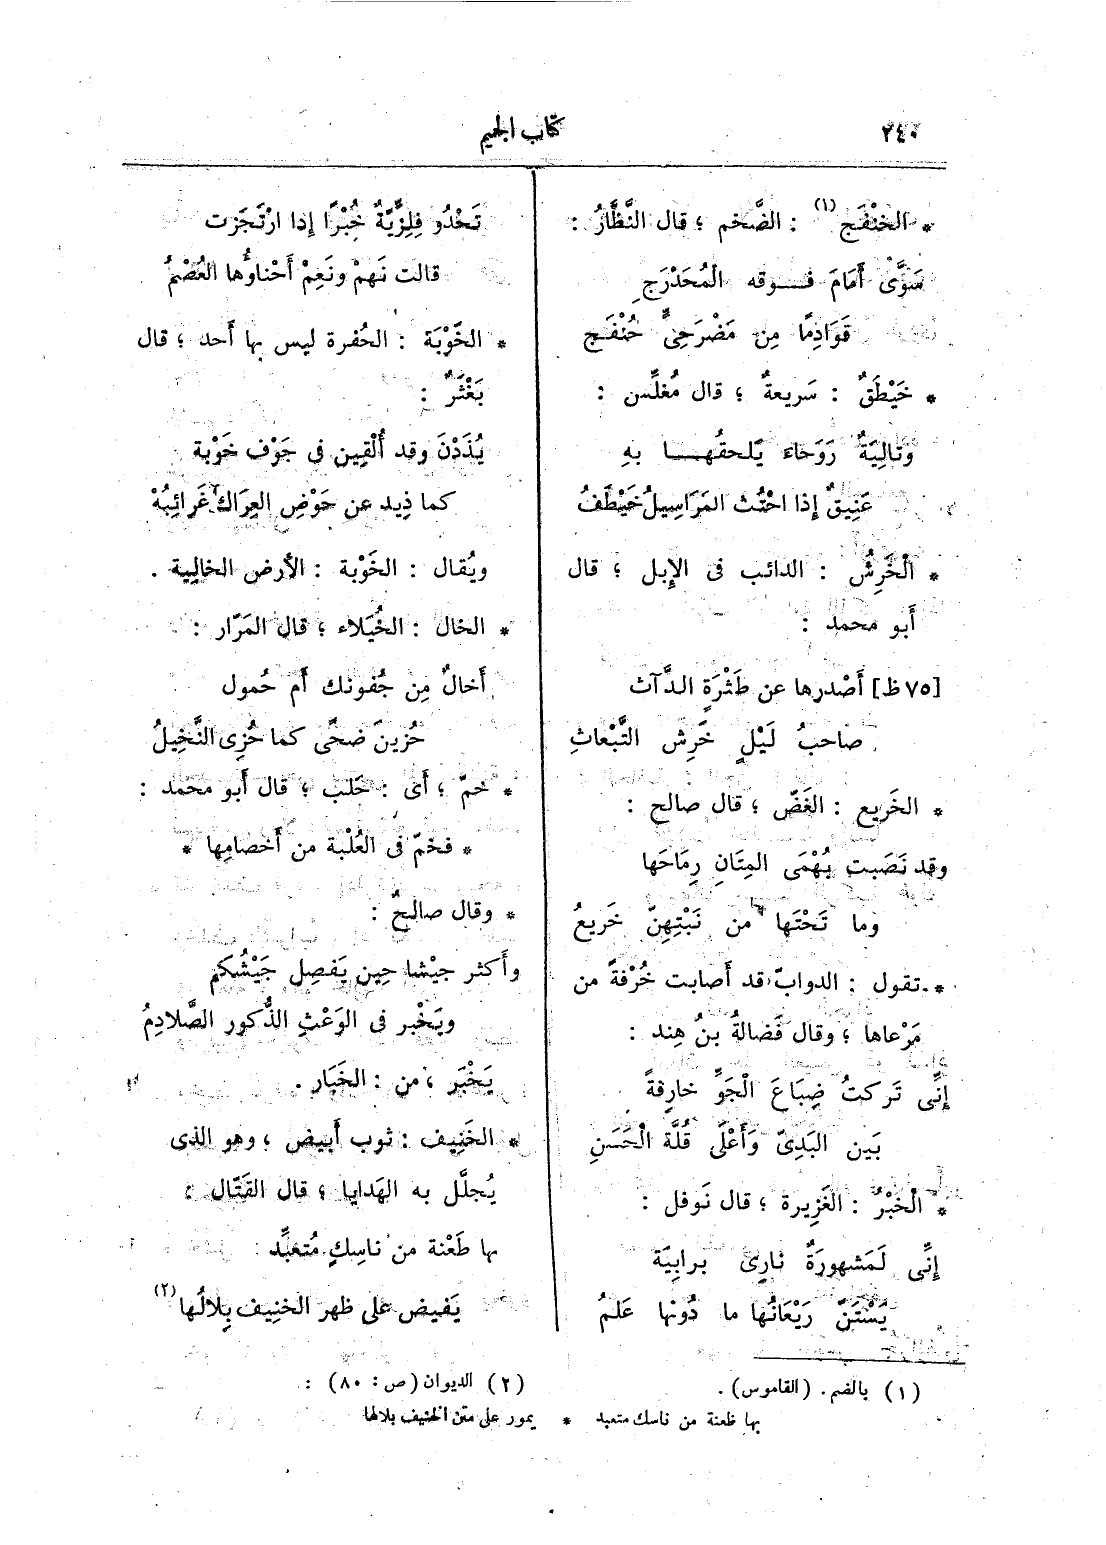 ٢٤٠
كتاب الجيم
* الخنْفَج (١) : الضَّخم ؛ قال النَّظَّارُ :
سَوَّى أَمَامَ فـوقه المُحَدْرَجِ
قَوَادِمًا مِن مَضْرَحِىٍّ خُنْفَج
* خَيْطَفٌ : سَريعةٌ ؛ قال مُغَلِّس :
وَتَالِيَةٌ رَوَحَاء يَلحقُهـا بهِ
عَنِيقٌ إذا احْتُث المَرَاسِيلُ خَيْطَفُ
* الْخَرِشُ : الدائب فى الإبل ؛ قال
أَبو محمد :
[٧٥ظ] أَصْدرها عن طَثْرَةِ الدَّآث
صاحبُ لَيْلٍ خَرِش التَّبْعاثِ
* الخَريع : الغَضّ ؛ قال صالح :
وقد نَصَبت بُهْمَى المِتَانِ رِمَاحَها
وما تَحْتَها من نَبْتِهِنّ خَريعُ
* تقول : الدوابّ قد أَصابت خُرْفةً من
مَرْعاها ؛ وقال فَضالةُ بنُ هِند :
إِنِّى تَركتُ ضِبَاعَ الْجَوِّ خارِفةً
بَين البَدِىّ وَأَعْلَى قُلَّة الْحَسَنِ
* الْخَبْرُ : الغَزِيرة ؛ قال نَوفل :
إِنِّى لَمَشهورَةٌ نارِى برابِيَّة
يَسْتَنّ رَيْعَانُها ما دُونها عَلمُ
تَحْدُو فِلِزِّيَّةٌ خُبْرًا إذا ارْتَجَزت
قالت نَهمْ ونَعِمْ أَحْناوُها العُصْمُ
* الخَوْبَة : الحُفرة ليس بها أَحد ؛ قال
بَغْثَرٌ :
يُذَدْنَ وقد أُلْقِين فى جَوْف خَوْبة
كما ذِيد عن حَوْضِ العِراك غَرائِبُهْ
ويُقال : الخَوْبة : الأرض الخالِية .
* الخال : الخُيَلاء ؛ قال المَرّار :
أَخالٌ مِن جُفونك أَم حُمول
حُزينَ ضحًى كما حُزِى النَّخِيلُ
* خمّ ؛ أَى : حَلب ؛ قال أَبو محمد :
* فخمّ فى العُلْبة من أَخصامِها *
* وقال صالحٌ :
وأَكثر جيْشا حِين يَفصِل جَيْشُكم
ويَخْبر فى الوَعْثِ الذُّكور الصَّلادِمُ
يَخْبَر ، من : الخَبَار .
* الخَنِيف : ثوب أَبيض ، وهو الذى
يُجلَّل به الهَدايا ؛ قال القَتّال :
بها طَعْنة من ناسِكٍ مُتعبِّد
يَفيض على ظهر الخنِيف بِلالُها (٢)
(١) بالضم . (القاموس) .
(٢) الديوان (ص : ٨٠) :
بها ظعنة من ناسك متعبد * يمور على متن الخنيف بلالها